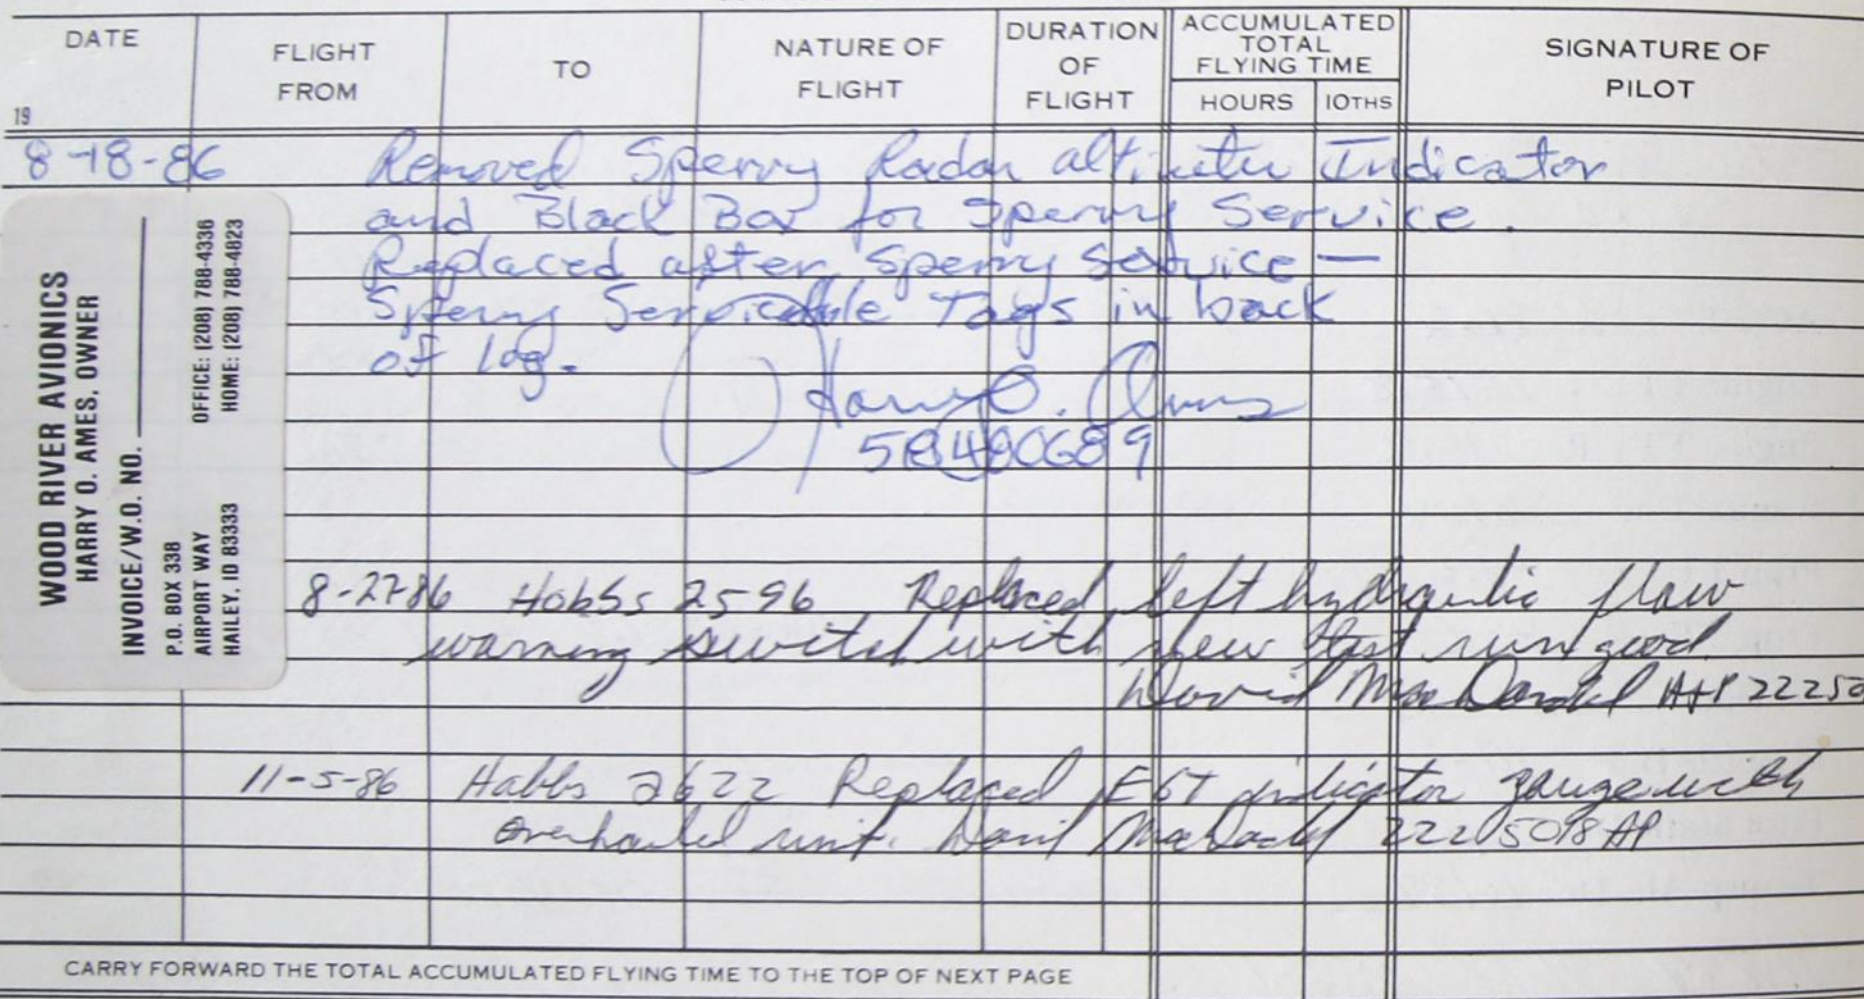 DATE
19
FLIGHT
FROM
TO
NATURE OF
FLIGHT
DURATION
OF
FLIGHT
ACCUMULATED
TOTAL
FLYING TIME
HOURS
10THS
SIGNATURE OF
PILOT
8-18-86 Removed Sperry Radar altimeter Indicator
and Black Box for Sperry Service.
Replaced after Sperry Service —
Sperry Serviceable Tags in back
of log.
Harry O. Ames
WOOD RIVER AVIONICS
HARRY O. AMES, OWNER
INVOICE/W.O. NO.
P.O. BOX 338 
AIRPORT WAY OFFICE: (208) 788-4336
HAILEY, ID 83333 HOME: (208) 788-4823
8-27-86 Hobbs 2596 Replaced left hydraulic flow
warning switch with new test run good
David A+P 22250
11-5-86 Hobbs 2622 Replaced EGT indicator gauge with
overhauled unit. David 2225018 AP
CARRY FORWARD THE TOTAL ACCUMULATED FLYING TIME TO THE TOP OF NEXT PAGE